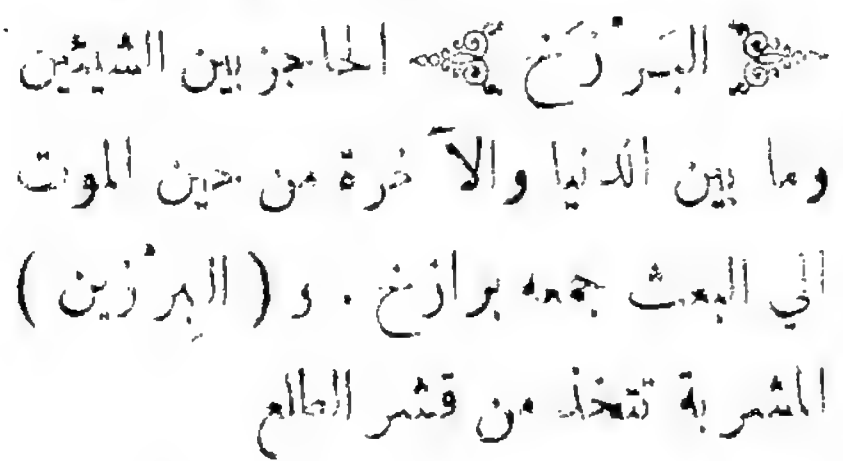 ﴿ البَرْزَخ ﴾ الحاجز بين الشيئين
وما بين الدنيا والآخرة من حين الموت
الي البعث جمعه برازخ . و ( البِرْزين )
المشربة تتخذ من قشر الطلع